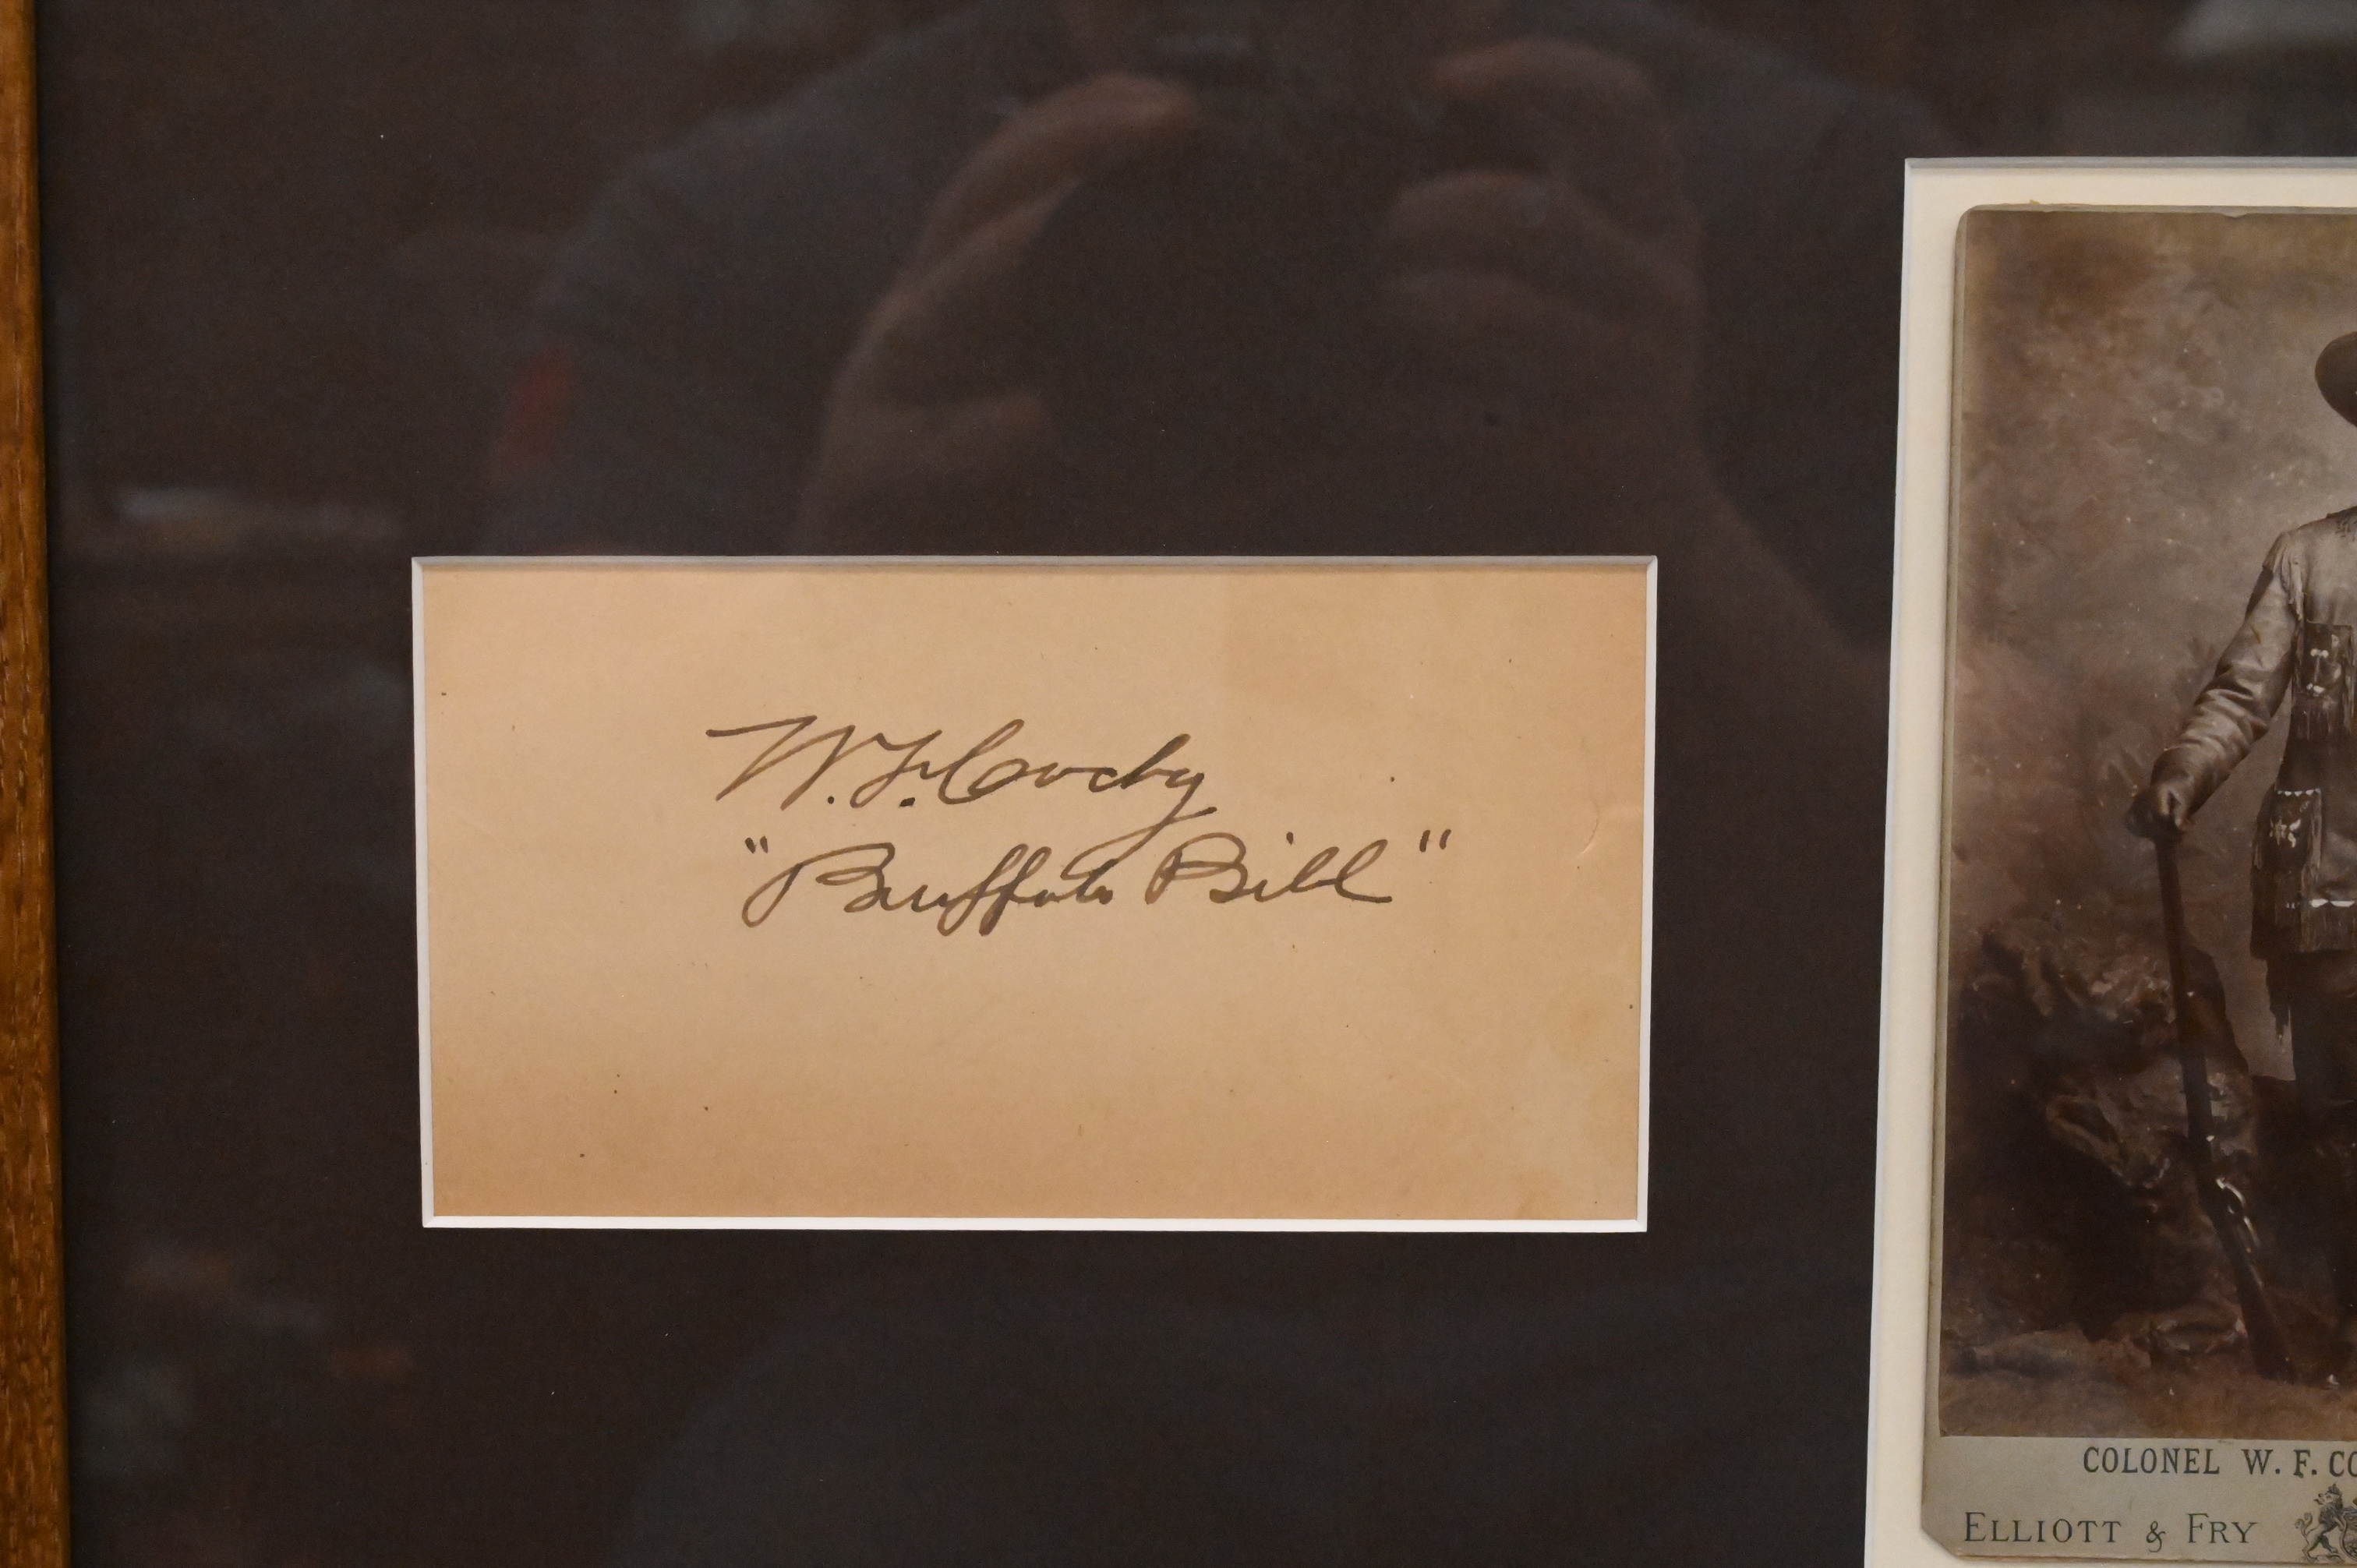 W. F. Cody
"Buffalo Bill"
COLONEL W. F. CO
ELLIOTT & FRY